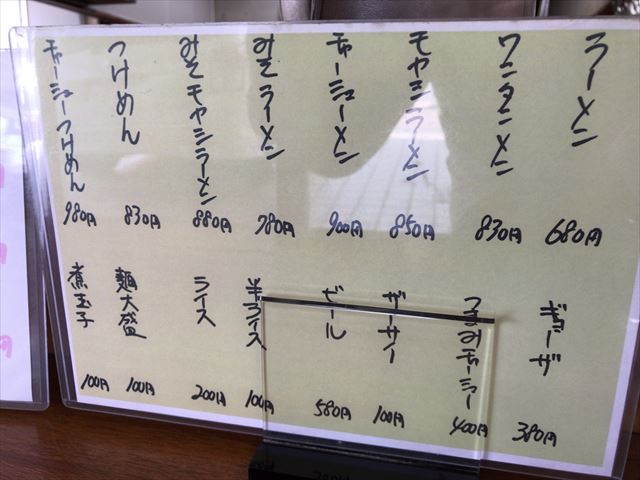 ラーメン 680円
ワンタンメン 830円
モヤシラーメン 850円
チャーシューメン 900円
みそラーメン 780円
みそモヤシラーメン 880円
つけめん 830円
チャーシューつけめん 980円
ギョーザ 380円
つまみチャーシュー 400円
ザーサイ 100円
ビール 580円
半ライス 100円
ライス 200円
麺大盛 100円
煮玉子 100円